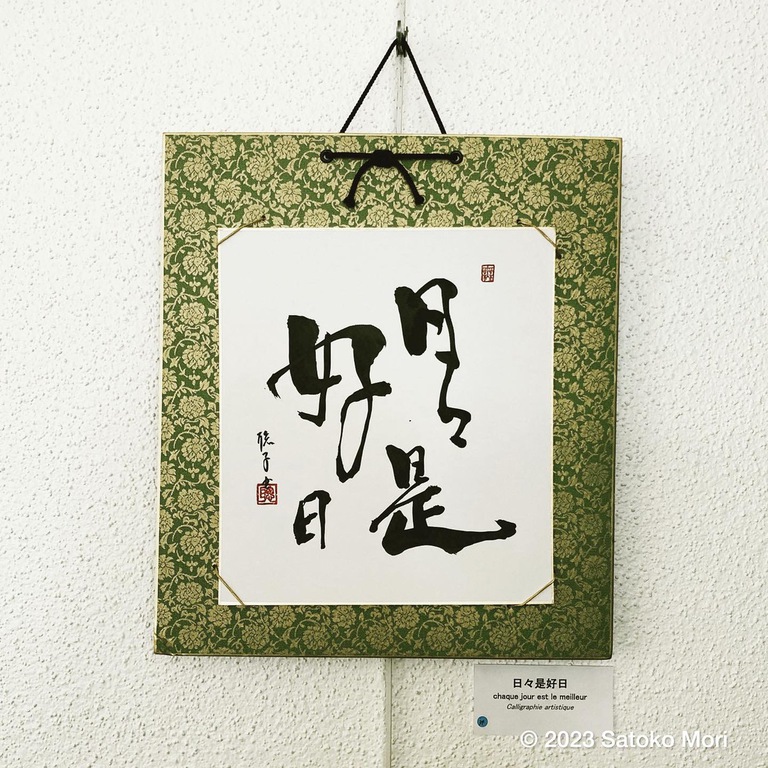 日々是
好日
聡子書
日々是好日
chaque jour est le meilleur
Calligraphie artistique
© 2023 Satoko Mori